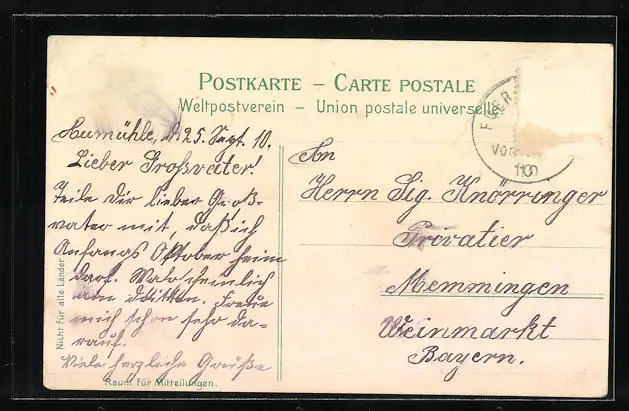 POSTKARTE – CARTE POSTALE
Weltpostverein – Union postale universelle
Aumühle, d. 25. Sept. 10.
Lieber Großvater!
Teile Dir lieber Groß-
vater mit, daß ich
Anfangs Oktober heim
darf. Wahrscheinlich
am dritten. Freue
mich schon sehr da-
rauf.
Viele herzliche Grüße
An
Herrn Sig. Knörringer
Privatier
Memmingen
Weinmarkt
Bayern.
VOR
1100
Nicht für alle Länder
Raum für Mitteilungen.